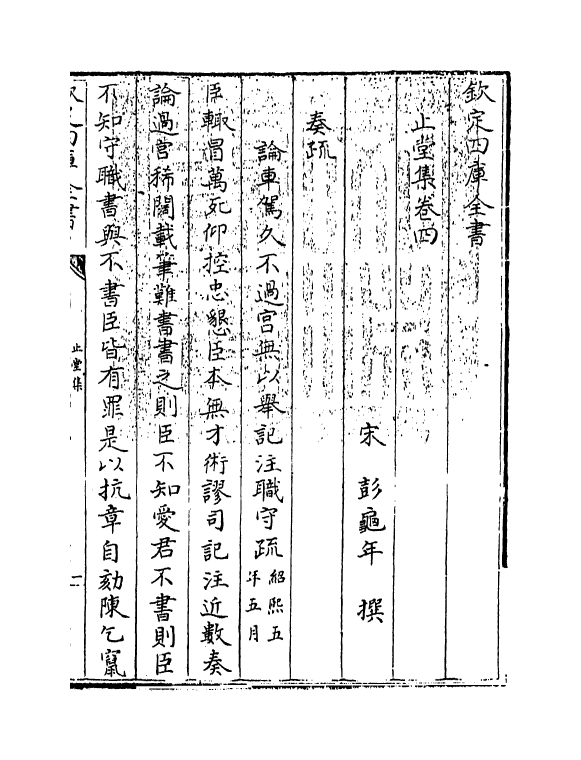 欽定四庫全書
止堂集卷四
宋 彭龜年 撰
奏疏
論車駕久不過宮無以舉記注職守疏紹熙五年五月
臣輒冒萬死仰控忠懇臣本無才術謬司記注近數奏
論過宮稀闊載筆難書書之則臣不知愛君不書則臣
不知守職書與不書臣皆有罪是以抗章自劾陳乞竄
止堂集
一